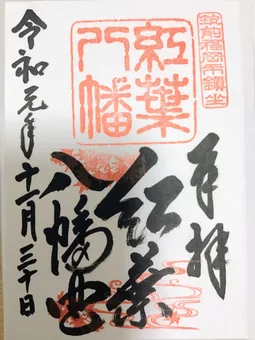 筑前福岡市鎮坐
奉拝
紅葉
八幡
紅葉
八幡宮
令和元年十一月三十日